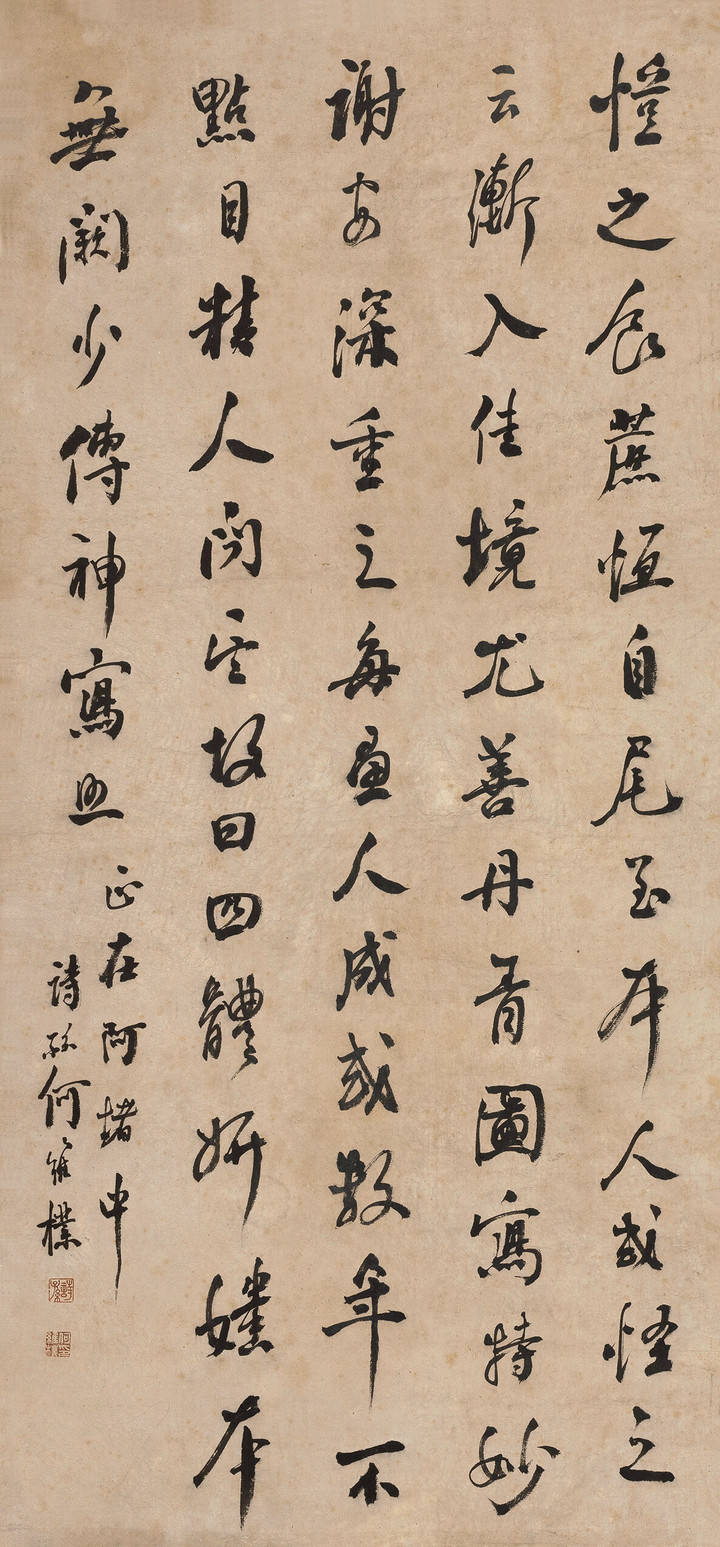 愷之食蔗恒自尾至本人或怪之
云漸入佳境尤善丹青圖寫特妙
謝安深重之每畫人成或數年不
點目精人問其故曰四體妍媸本
無闕少傳神寫照
正在阿堵中
詩孫何維樸